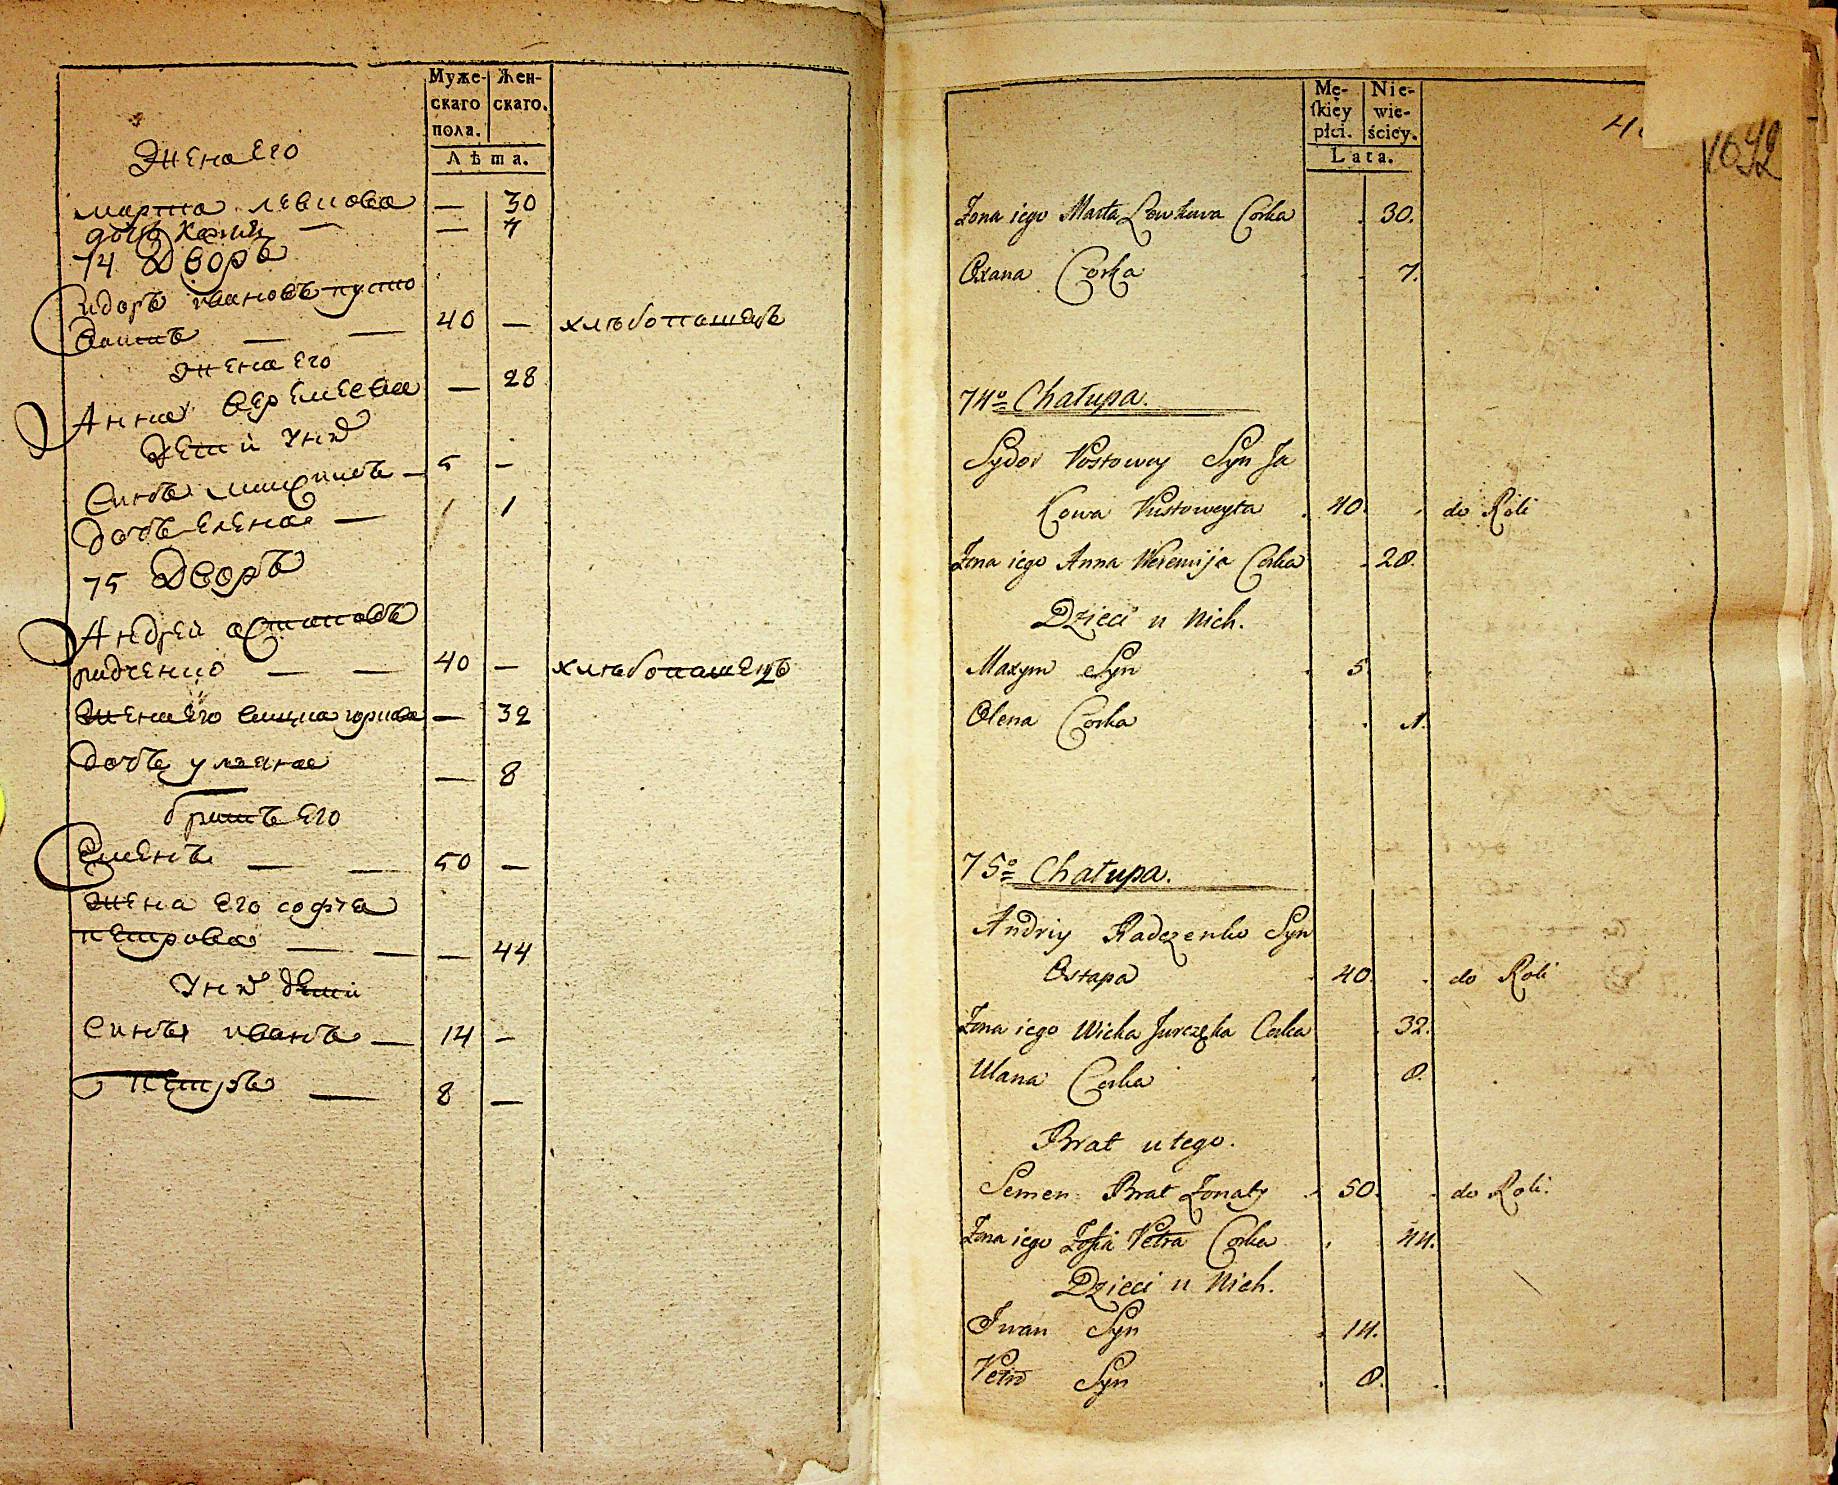 Муже- Жен-
скаго скаго.
пола.
Лѣта.
Жена Его
марта левкова — 30
дочь — 7
74 Дворъ
Сидоръ ивановъ пусто
ваитъ — — 40 — хлѣбопашецъ
жена Его
Анна веремеева — 28
дети у них
Синъ максимъ — 5 —
дочь елена — / 1
75 Дворъ
Андреи остаповъ
радченко — — 40 — хлѣбопашецъ
Жена Его — 32
дочь уляна — 8
братъ Его
Семенъ — — 50 —
жена Его софiа
петрова — — — 44
у них дети
Синъ иванъ — 14 —
петръ — 8 —
Mę- Nie-
skiey wie-
płci. ściey.
Lata.
1642
Żona iego Marta Lewkowa Corka 30.
Oxana Corka 7.
74º Chałupa.
Sydor Pustowey Syn Ja
kowa Pustoweyta 40. do Roli
Żona iego Anna Weremija Corka 28.
Dzieci u Nich.
Maxym Syn 5
Olena Corka 1.
75º Chałupa.
Andriy Radczenko Syn
Ostapa 40. do Roli
Żona iego Wicka Jurczyka Corka 32.
Ulana Corka 8.
Brat u tego.
Semen Brat Żonaty 50. do Roli.
Żona iego Zofia Petra Corka 44.
Dzieci u Nich.
Iwan Syn 14.
Petro Syn 8.